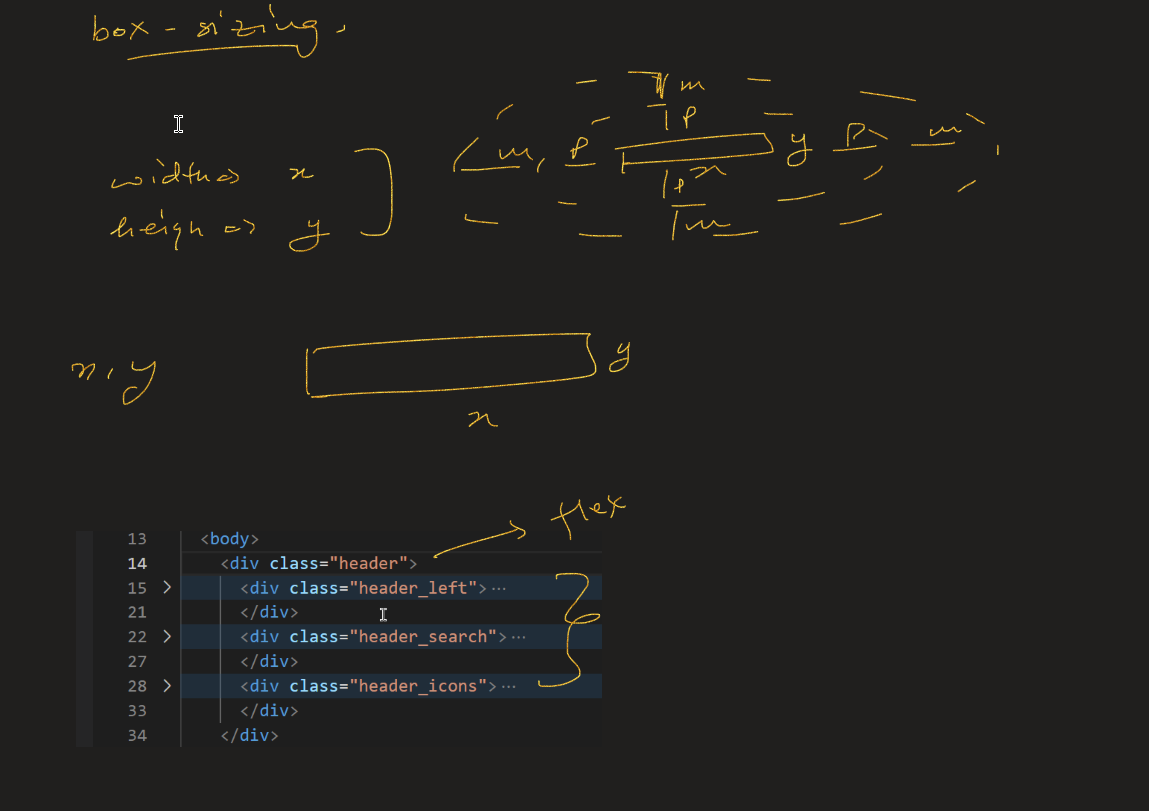 box - sizing.
m
P
m, P y P m
x
P
m
width => x
heigh => y
x, y y
x
flex
13 <body>
14 <div class="header">
15 <div class="header_left">…
21 </div>
22 <div class="header_search">…
27 </div>
28 <div class="header_icons">…
33 </div>
34 </div>